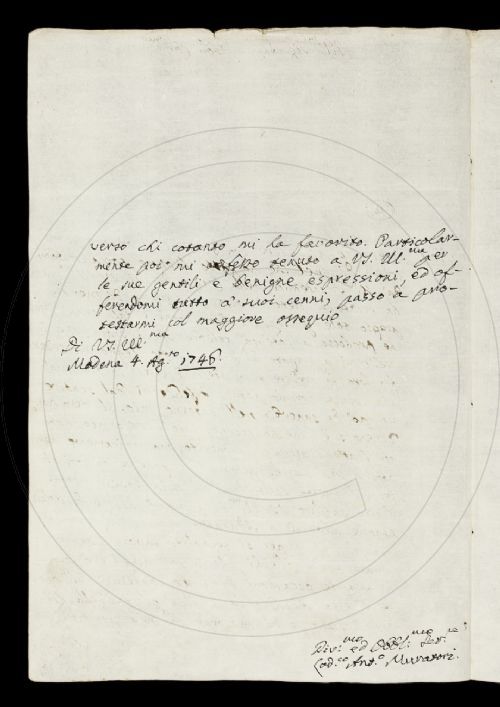 verso chi cotanto mi ha favorito. Particolar-
mente poi mi tenuto a VS. Ill.ma per
le sue gentili e benigne espressioni, ed of-
ferendomi tutto a' suoi cenni, passo a pro-
testarmi col maggiore ossequio
Di VS. Ill.ma
Modena 4. Ag.to 1746.
Div.mo ed Obbl.mo Ser.re
Lod.co Ant.o Muratori.